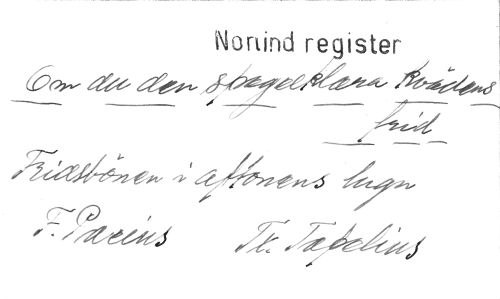 Norlind register
Om du den spegelklara kvädens
frid
Fridsbönen i aftonens lugn
F. Pacius Tr. Topelius